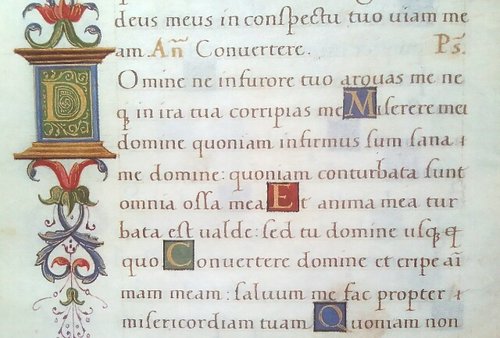 deus meus in conspectu tuo uiam me
am. Añ Convertere. Ps.
Domine ne infurore tuo arguas me ne
q in ira tua corripias me Miserere mei
domine quoniam infirmus sum sana
me domine: quoniam conturbata sunt
omnia ossa mea Et anima mea tur
bata est ualde: sed tu domine usq q
quo Convertere domine et eripe añ
mam meam: saluum me fac propter
misericordiam tuam Quoniam non